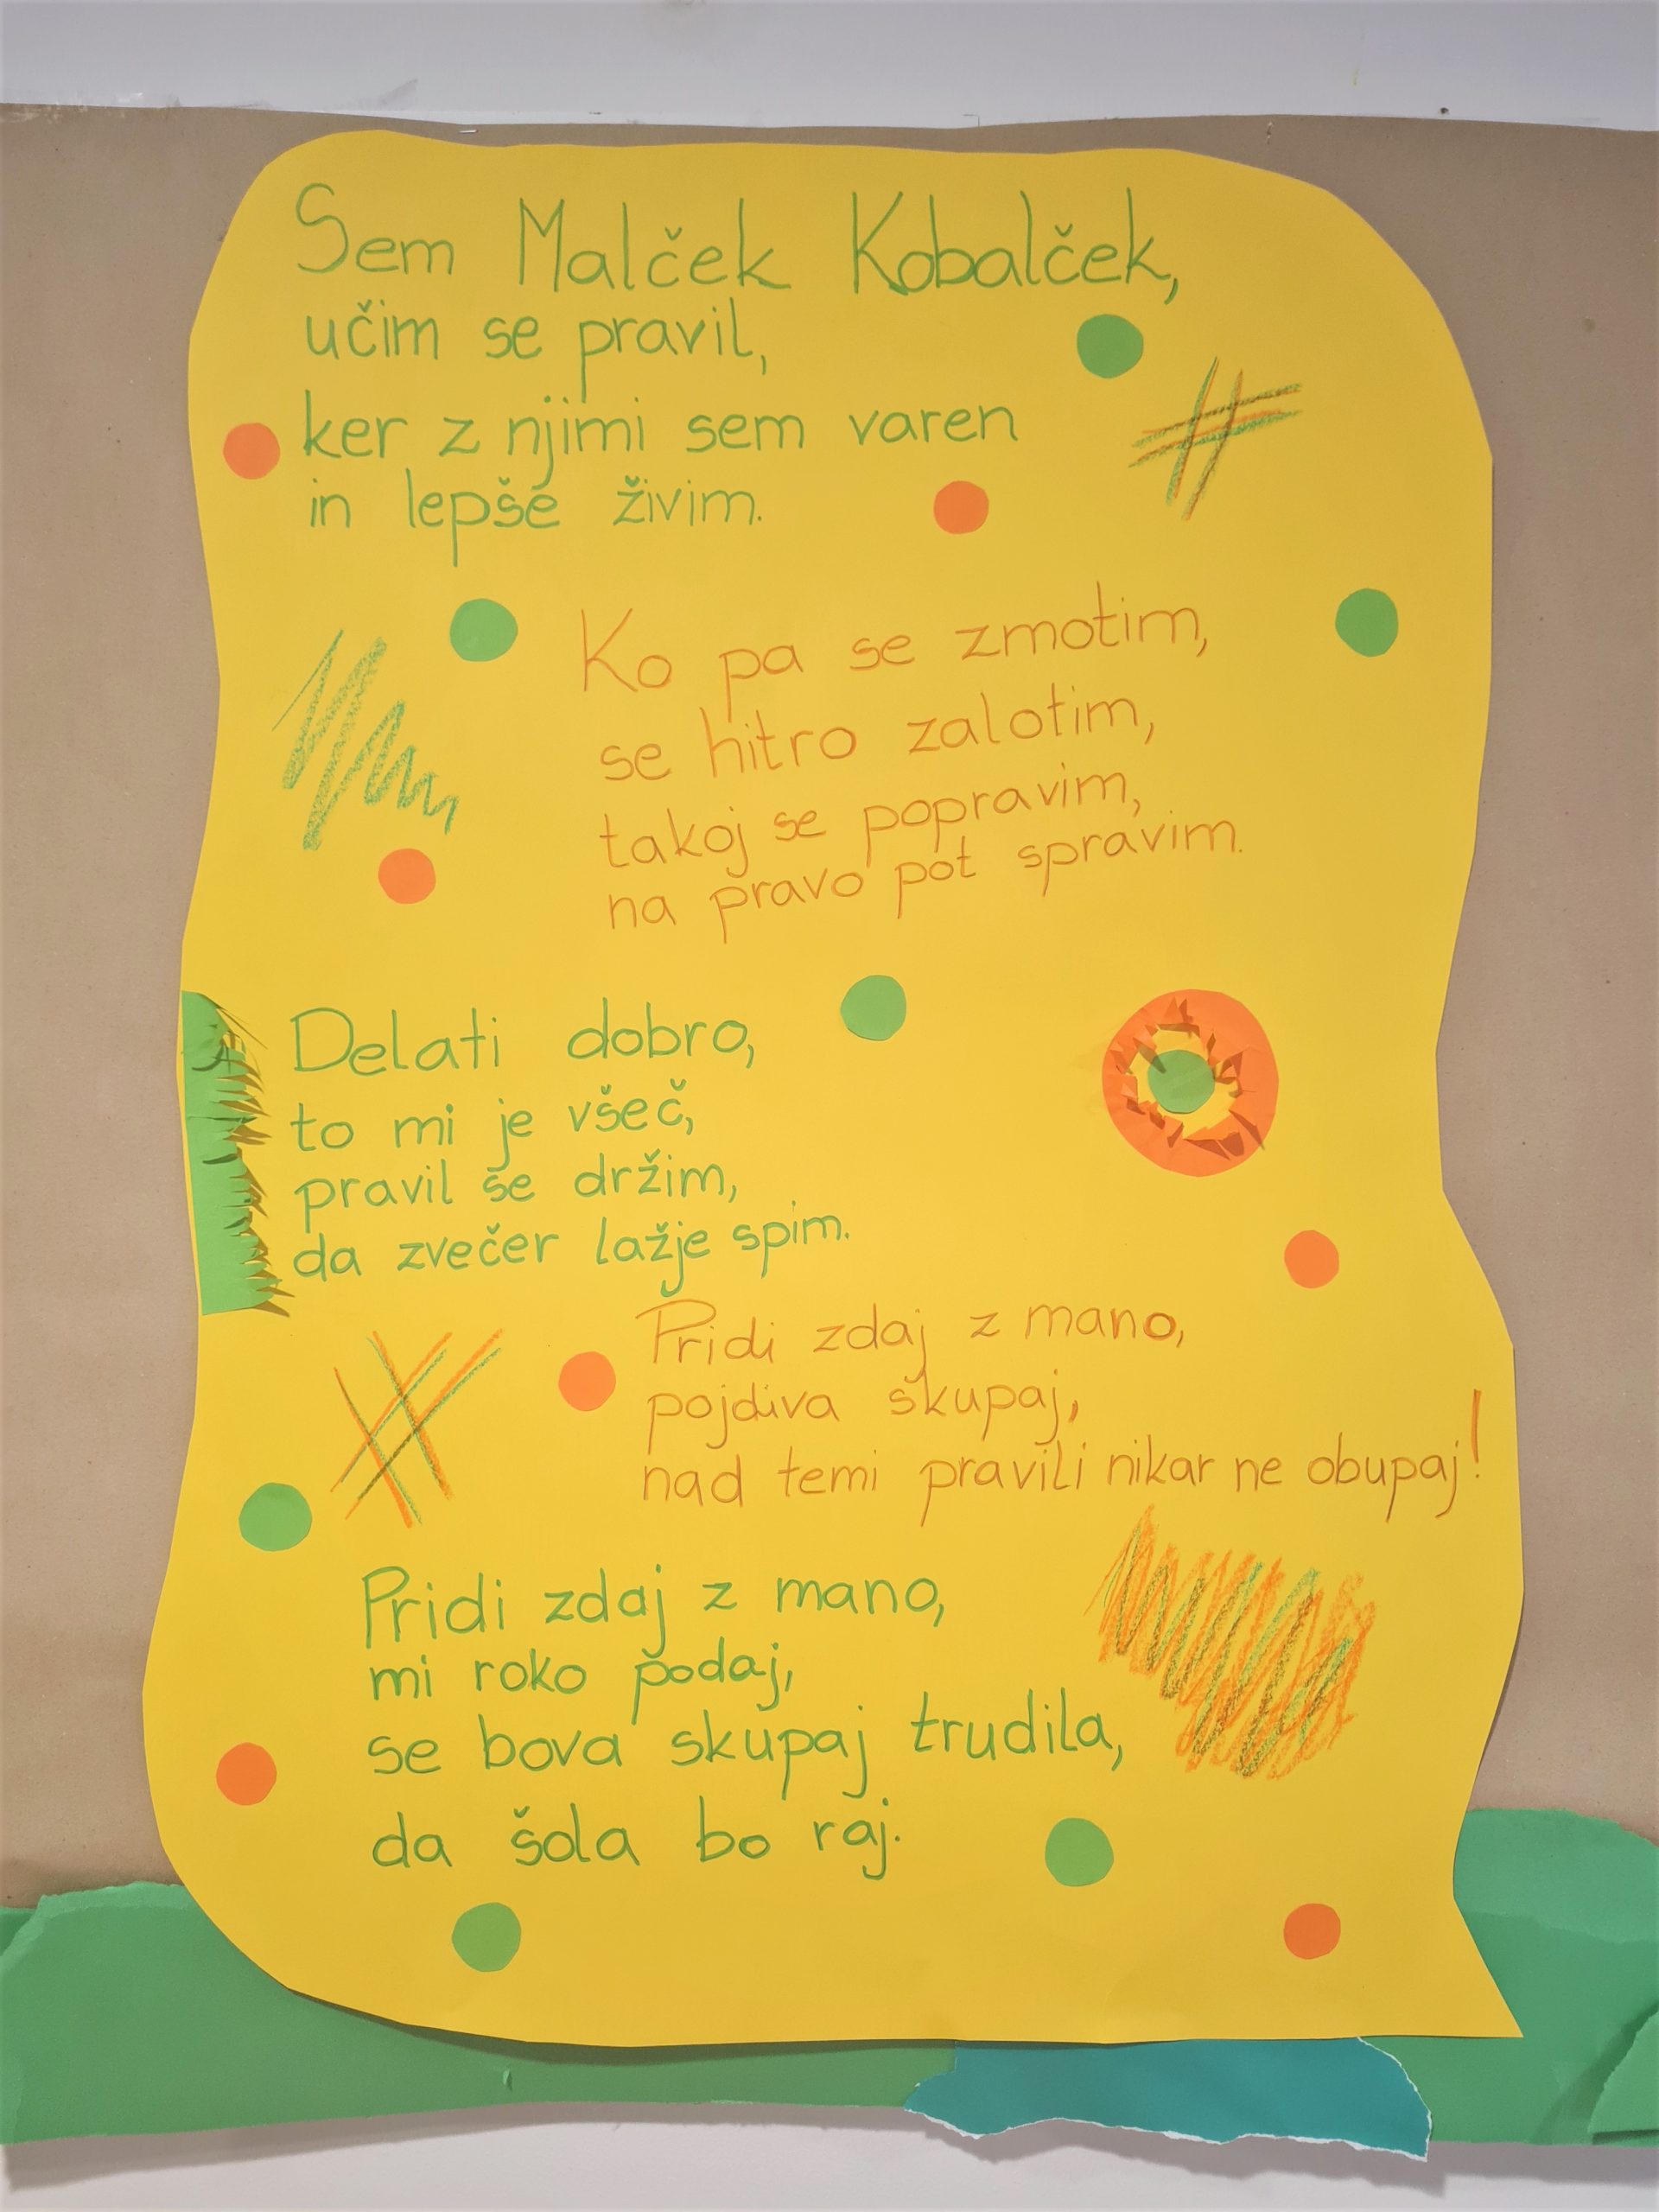 Sem Malček Kobalček,
učim se pravil,
ker z njimi sem varen
in lepše živim.
Ko pa se zmotim,
se hitro zalotim,
takoj se popravim,
na pravo pot spravim.
Delati dobro,
to mi je všeč,
pravil se držim,
da zvečer lažje spim.
Pridi zdaj z mano,
pojdiva skupaj,
nad temi pravili nikar ne obupaj!
Pridi zdaj z mano,
mi roko podaj,
se bova skupaj trudila,
da šola bo raj.